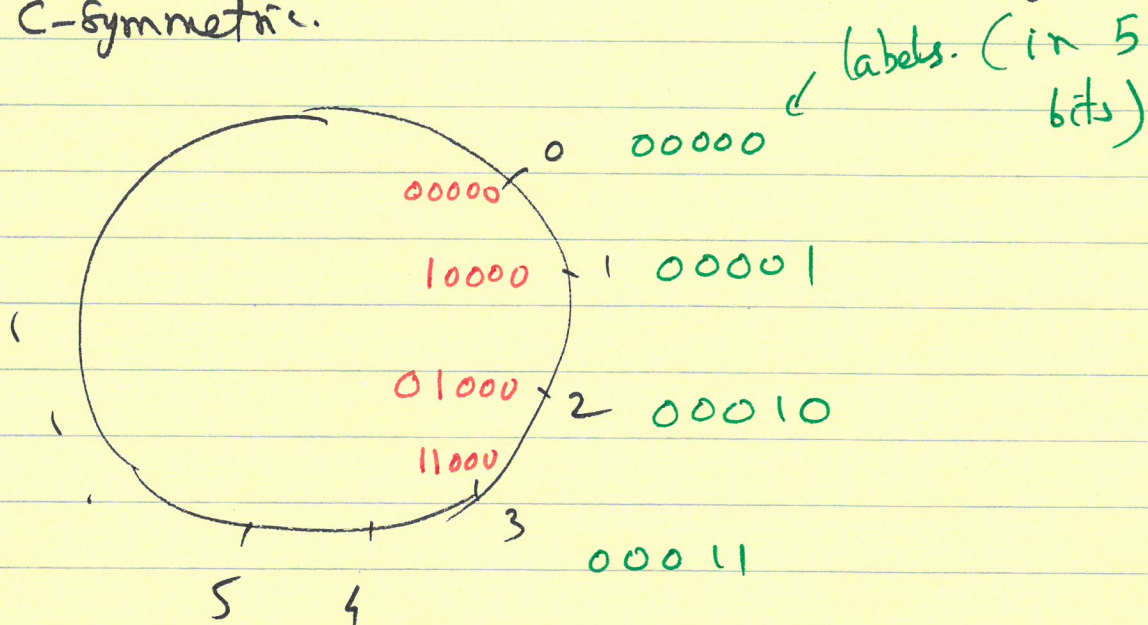 C-Symmetric.
labels. (in 5
bits)
0 00000
00000
10000 1 00001
01000 2 00010
11000
3
00011
5 4